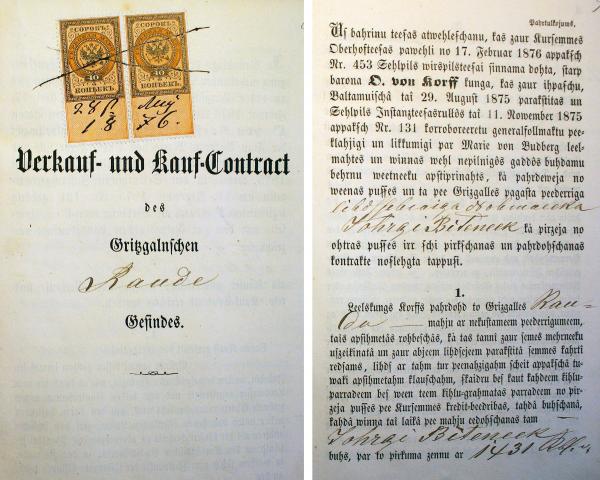 СОРОКЪ СОРОКЪ
40 40
КОПѢЕКЪ КОПѢЕКЪ
28 Aug
18 76.
Verkauf- und Kauf-Contract
des
Gritzgalnschen
Raude
Gesindes.
Pahrtulkojums.
Us bahrinu teesas atwehleschanu, kas zaur Kursemmes
Oberhofteesas pawehli no 17. Februar 1876 appaksch
Nr. 453 Sehlpils wirspilsteesai sinnama dohta, starp
barona O. von Korff kunga, kas zaur ihpaschu,
Baltamuischâ tai 29. August 1875 parakstitas un
Sehlpils Instanzteesasrullôs tai 11. November 1875
appaksch Nr. 131 korroboreeretu generalfollmaktu pee-
klahjigi un likkumigi par Marie von Budberg leel-
mahtes un winnas wehl nepilnigôs gaddôs buhdamu
behrnu weetneeku apstiprinahts, kâ pahrdeweja no
weenas pusses un ta pee Grizgalles pagasta peederriga
lihds schehaiga
Johrgi Biteneek kâ pirzeja no
ohtras pusses irr schi pirkschanas un pahrdohschanas
kontrakte noslehgta tappusi.
1.
Leelskungs Korffs pahrdohd to Grizgalles Rau-
da mahju ar nekustameem peederrigumeem,
tais apsihmetâs rohbeschâs, kâ tas tanni zaur semes mehrneeku
uszeikinatâ un zaur abjeem lihdsejeem parakstitâ semmes kahrtî
redsams, lihds ar tahm tur peenahzigahm scheit appakschâ tu-
waki apsihmetahm klauschahm, skaidru bej kaut kahdeem kihlu-
parradeem bej ween teem kihlu-grahmatas parradeem no pir-
zeja pusses pee Kursemmes kredit-beedribas, tahdâ buhschanâ,
kahdâ winna tai laikâ pee mahju eedohschanas tam
Johrgi Biteneek
buhs, par to pirkuma zennu ar 1431 Rbl.